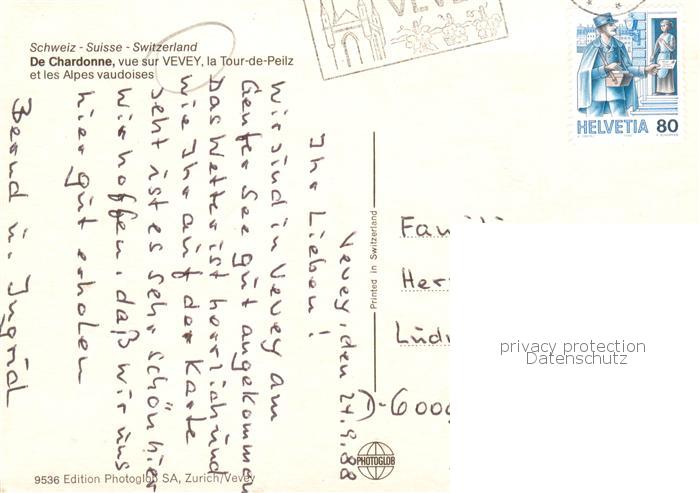 Schweiz - Suisse - Switzerland
De Chardonne, vue sur VEVEY, la Tour-de-Peilz
et les Alpes vaudoises
VEVEY
HELVETIA 80
Vevey, den 24.9.88
Ihr Lieben!
Wir sind in Vevey am
Genfer See gut angekommen
Das Wetter ist herrlich und
wie Ihr auf der Karte
seht ist es sehr schön hier
Wir hoffen, daß wir uns
hier gut erholen
Bernd u. Ingrid
Printed in Switzerland
Fam
Her
Lud
D-6000
privacy protection
Datenschutz
PHOTOGLOB
9536 Edition Photoglob SA, Zurich/Vevey